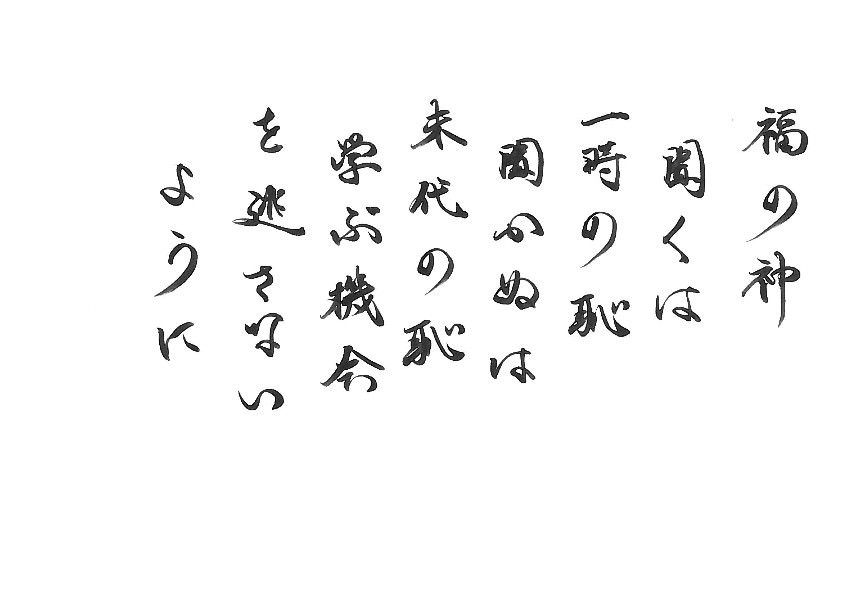 福の神
聞くは
一時の恥
聞かぬは
末代の恥
学ぶ機会
を逃さない
ように